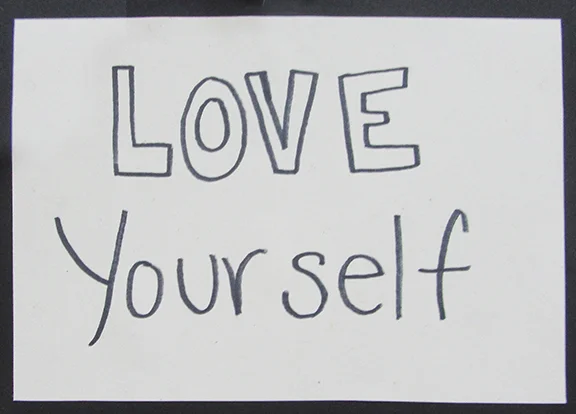 LOVE
Yourself